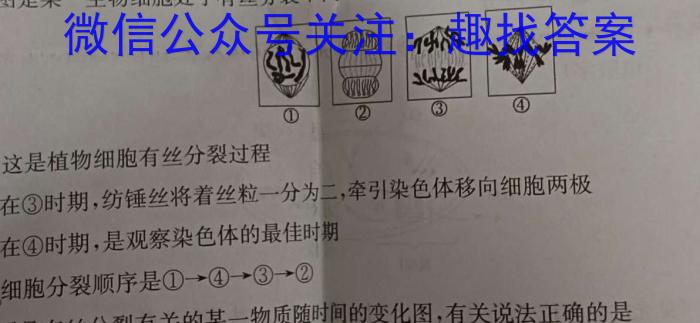 微信公众号关注：趣找答案
① ② ③ ④
这是植物细胞有丝分裂过程
在③时期,纺锤丝将着丝粒一分为二,牵引染色体移向细胞两极
在④时期,是观察染色体的最佳时期
细胞分裂顺序是①→④→③→②
有丝分裂有关的某一物质随时间的变化图,有关说法正确的是